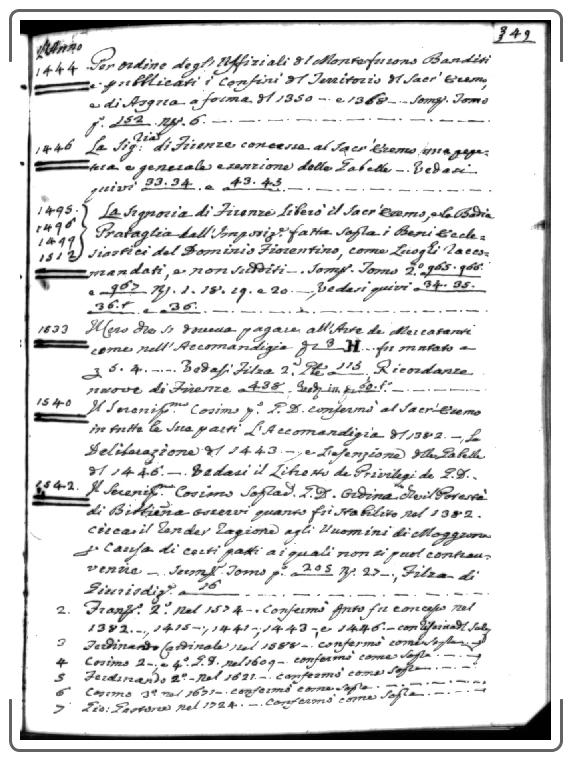 349
Anno
1444 Per ordine degl'Uffiziali di Monte furono Banditi
e pubblicati i Confini del Territorio del Sacr'Eremo,
e di Asqua a forma del 1350 — e 1368 — Tomo
152 6.
1446 La Sig.ria di Firenze concesse al Sacr'Eremo una perpe=
tua e generale esenzione delle Gabelle — Vedasi
quivi 33.34. e 43.45
1495. La Signoria di Firenze Liberò il Sacr'Eremo, e la Badia
1496 Prataglia dall' fatta sopra i Beni Eccle=
1499 siastici del Dominio Fiorentino, come Luoghi racco=
1512 mandati, e non sudditi — Tomo 2.º 965.966
e 967 1. 18. 19. e 20 — Vedasi quivi 34. 35.
36.t e 36
1533 si doveva pagare all'Arte de Mercatanti
come nell'Accomandigia 3 fu mutato a
5. 4. — Vedasi Filza 2.ª 115 Ricordanze
nuove di Firenze 438
1540 Il Sereniss.mo Cosimo p.º G.D. confermò al Sacr'Eremo
in tutte le sue parti L'Accomandigia del 1382 — La
Deliberazione del 1443 — e L'esenzione delle Gabelle
del 1446 — Vedasi il Libretto de Privilegi de G.D.
1542. Il Sereniss.mo Cosimo G.D. Ordina che il Potestà
di Bibbiena osservi quanto fu stabilito nel 1382.
circa il render ragione agli Uomini di Moggiona
p. Causa di certi patti ai quali non si puol contrav=
venire — Tomo p.º 205 27 — Filza di
Giurisdiz. 16
2 Franc.º 2.º nel 1574 — Confermò fu concesso nel
1382 —, 1415 —, 1441 —, 1443 — e 1446 —
3 Ferdinando Cardinale nel 1588 — confermò come sopra
4 Cosimo 2 — e 4.º G.D. nel 1609 — confermò come sopra
5 Ferdinando 2.º — nel 1621 — confermò come sopra
6 Cosimo 3.º nel 1671 — confermò come sopra
7 Gio: Gastone nel 1724 — Confermò come sopra